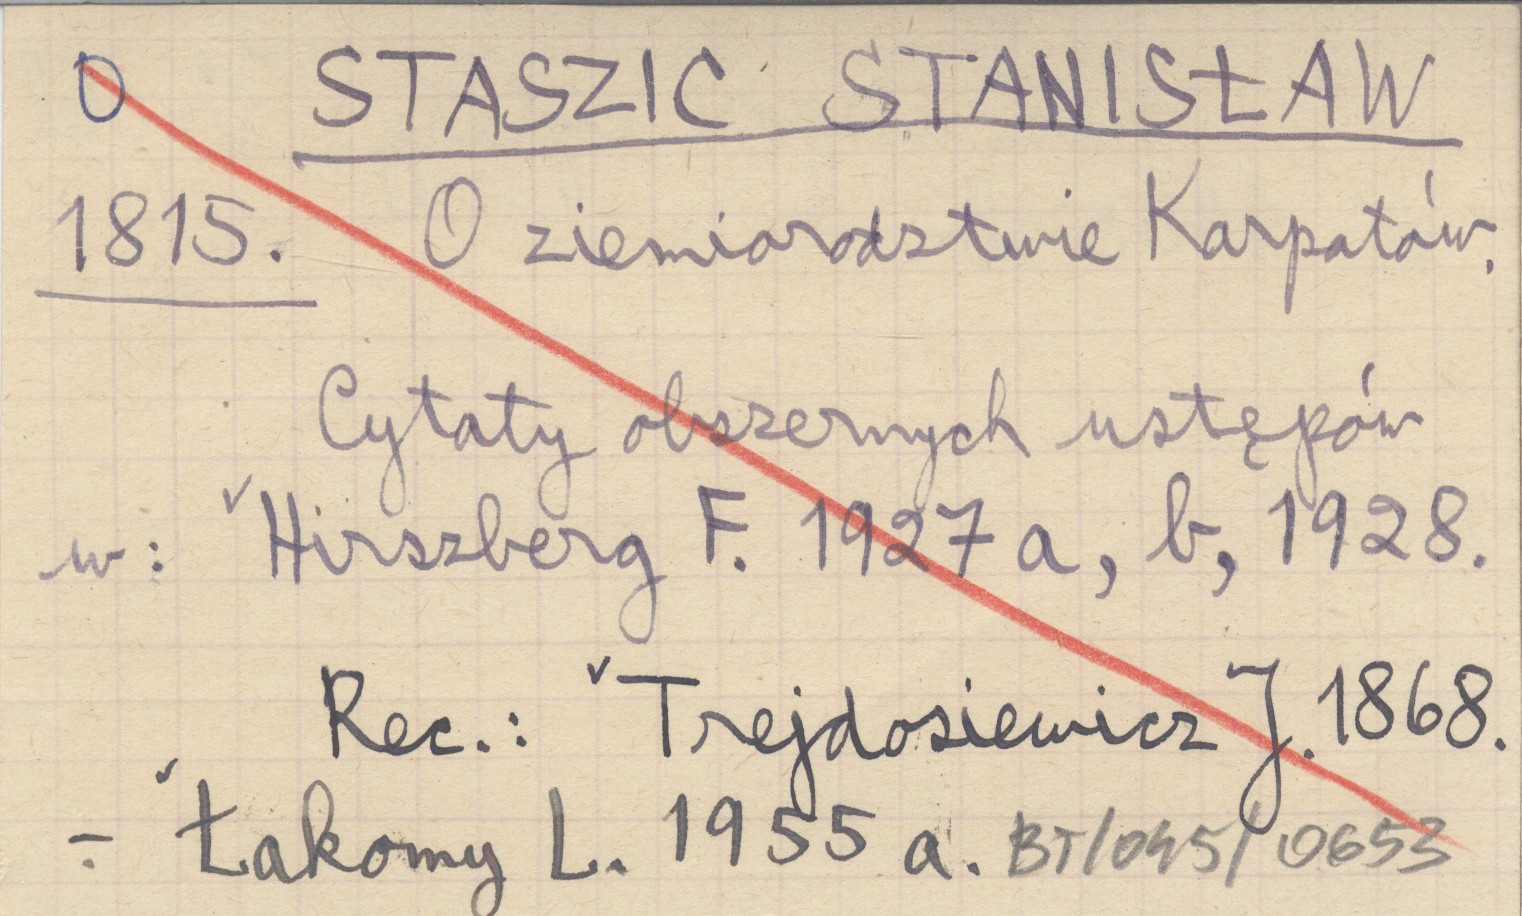 O STASZIC STANISŁAW
1815. O ziemiorodztwie Karpatów.
Cytaty obszernych ustępów
w: ˇHirszberg F. 1927a, b, 1928.
Rec.: ˇTrejdosiewicz J. 1868.
÷ ˇŁakomy L. 1955 a. BT/045/0653